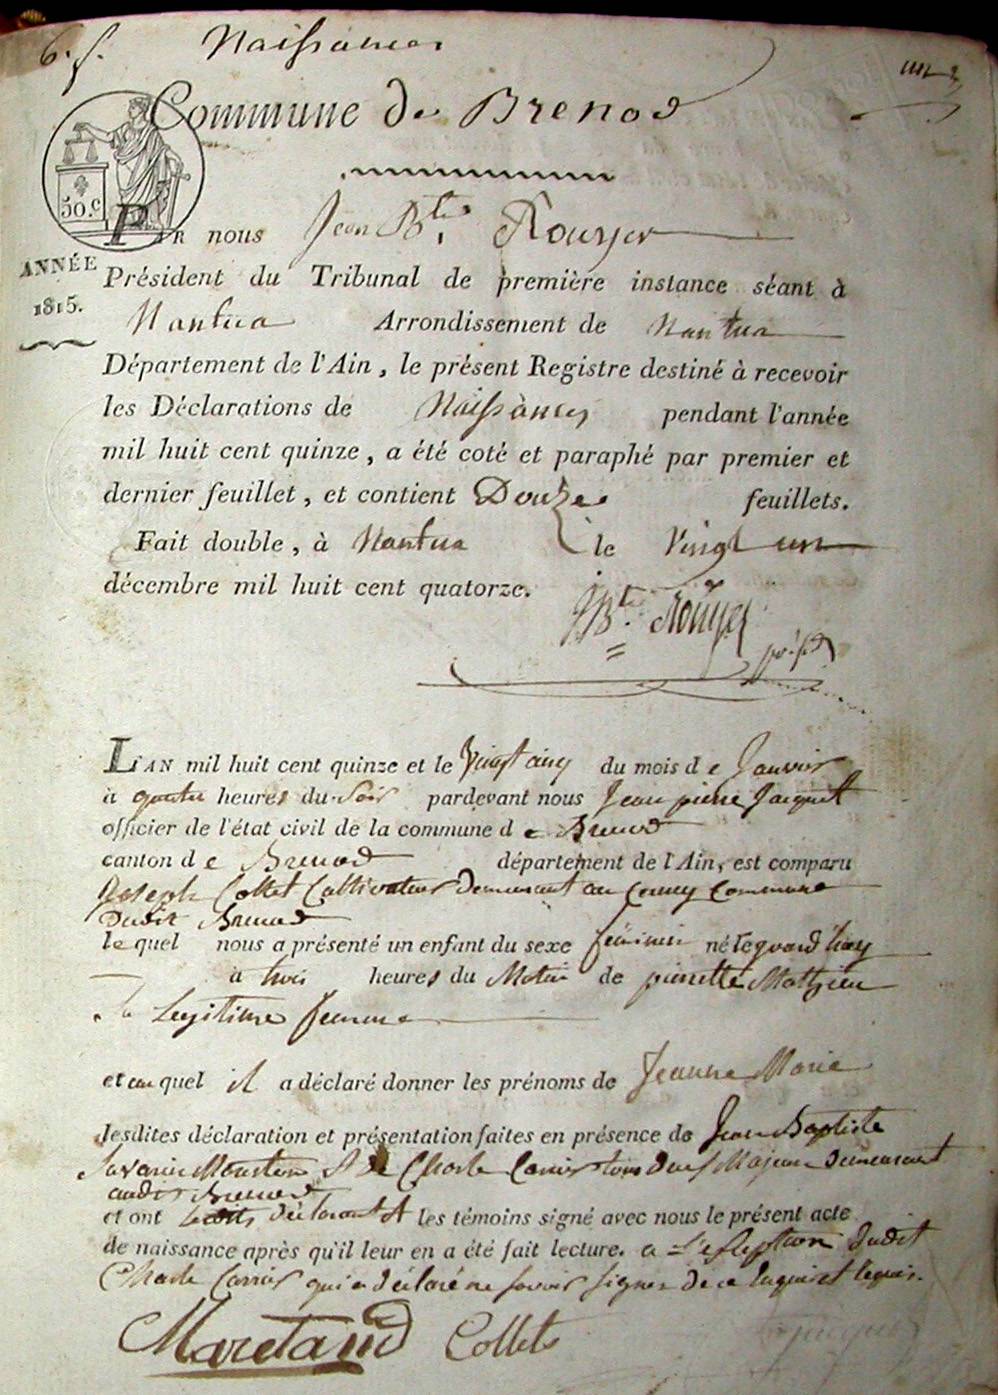 6. f. Naissances
un
Commune de Brenod
50.c
ANNÉE
1815.
PAR nous Jean Bte. Rouyer
Président du Tribunal de première instance séant à
Nantua Arrondissement de Nantua
Département de l'Ain, le présent Registre destiné à recevoir
les Déclarations de Naissances pendant l'année
mil huit cent quinze, a été coté et paraphé par premier et
dernier feuillet, et contient Douze feuillets.
Fait double, à Nantua le Vingt un
décembre mil huit cent quatorze.
JBte. Rouyer
présidt
L'AN mil huit cent quinze et le Vingt cinq du mois de Janvier
à quatre heures du Soir pardevant nous Jean pierre Jacquet
officier de l'état civil de la commune de Brenod
canton de Brenod département de l'Ain, est comparu
Joseph Collet Cultivateur Demeurant au Commune
Dudit Brenod
lequel nous a présenté un enfant du sexe féminin né le
à trois heures du Matin de pierrette Mathieu
sa Legitime femme
et auquel il a déclaré donner les prénoms de Jeanne Marie
lesdites déclaration et présentation faites en présence de Jean Baptiste
Savarin et de Charle Carrier tous deux Majeurs Demeurant
audit Brenod
et ont Ledits déclarant et les témoins signé avec nous le présent acte
de naissance après qu'il leur en a été fait lecture. a L'exseption dudit
Charle Carrier qui a déclaré ne savoir signer de ce Enquis et requis.
Collet